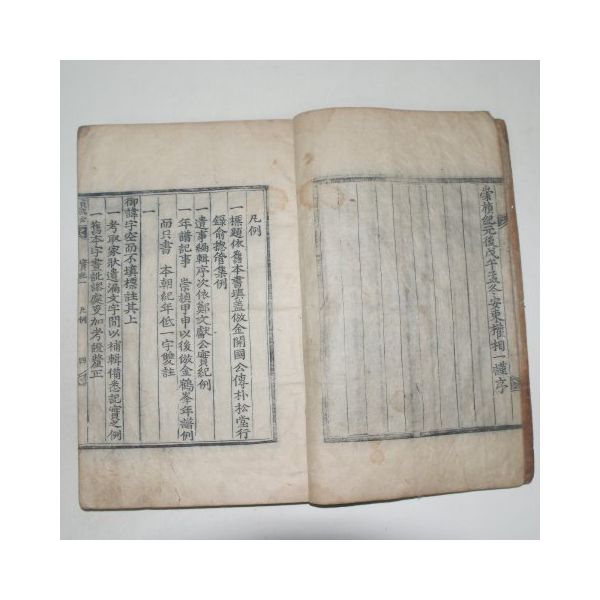 崇禎紀元後戊午孟冬安東權相一謹序
凡例
一標題依舊本書填盖倣金開國公傳朴松堂行
錄俞摠管集例
一遺事編輯序次依鄭文獻公實紀例
一年譜記事 崇禎甲申以後倣金鶴峯年譜例
而只書 本朝紀年低一字雙註
一
御諱字空而不填標註其上
一考取家狀遺漏文字間以補輯備悉記實之例
一舊本字畫訛誤處更加考證釐正
實紀 凡例 四